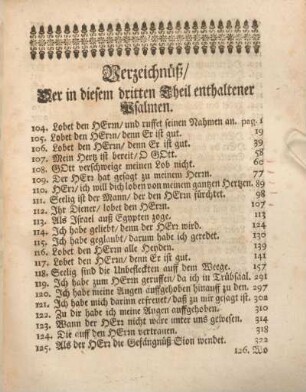 Verzeichnüß/
Der in diesem dritten Theil enthaltener
Psalmen.
104. Lobet den HErrn/ und ruffet seinen Nahmen an. pag. 1
105. Lobet den HErrn/ denn Er ist gut. 19
106. Lobet den HErrn/ denn Er ist gut. 39
107. Mein Hertz ist bereit/ O GOtt. 58
108. GOtt verschweige meinen Lob nicht. 60
109. Der HErr hat gesagt zu meinem Herrn. 77
110. HErr/ ich will dich loben von meinem gantzen Hertzen. 89
111. Seelig ist der Mann/ der den HErrn fürchtet. 98
112. Ihr Diener/ lobet den HErrn. 107
113. Als Israel auß Egypten zoge. 113
114. Ich habe geliebt/ denn der HErr wird. 124
115. Ich habe geglaubt/ darum habe ich geredet. 130
116. Lobet den HErrn alle Heyden. 139
117. Lobet den HErrn/ denn Er ist gut. 141
118. Seelig sind die Unbefleckten auff dem Weege. 157
119. Ich habe zum HErrn geruffen/ da ich in Trübsal. 231
120. Ich habe meine Augen auffgehoben hinauff zu den. 297
121. Ich habe mich darinn erfreuet/ daß zu mir gesagt ist. 302
122. Zu dir habe ich meine Augen auffgehoben. 310
123. Wann der HErr nicht wäre unter uns gewesen. 314
124. Die auff den HErrn vertrauen. 318
125. Als der HErr die Gefängnüß Sion wendet. 322
126. Wo